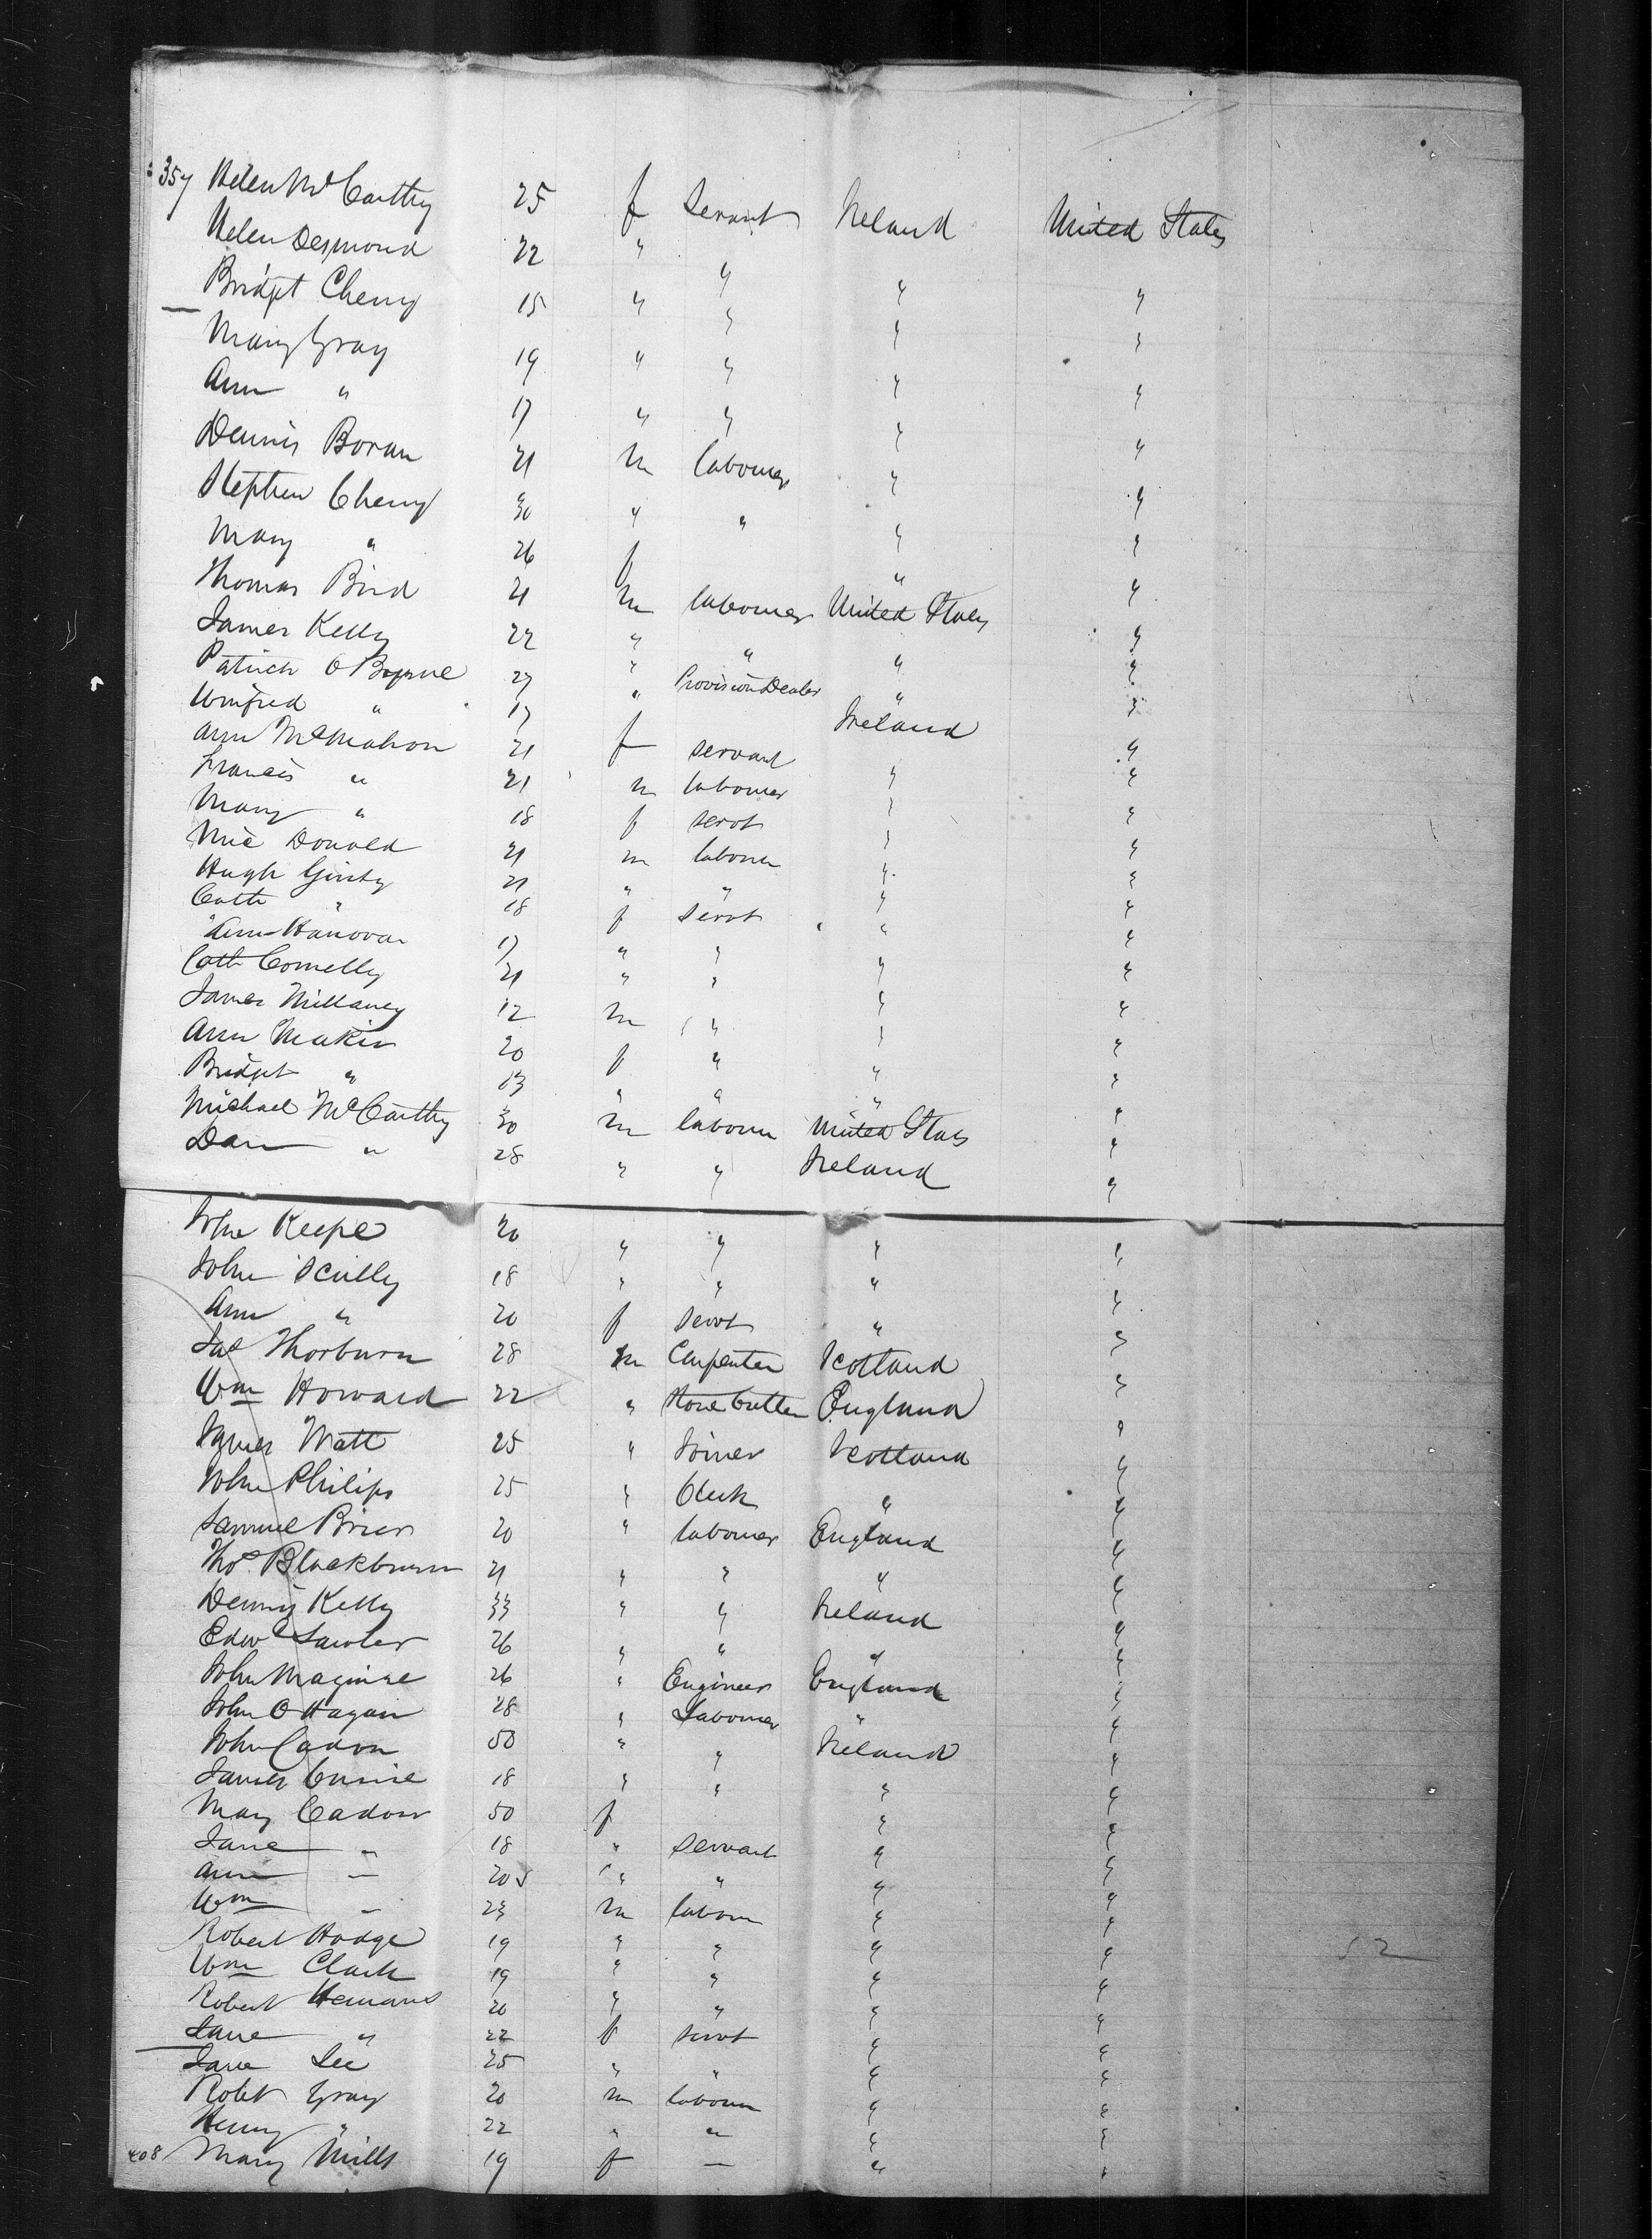 357 Helen McCarthy 25 f Servant Ireland United States
Helen Desmond 22 " " " "
Bridget Cherry 15 " " " "
Mary Gray 19 " " " "
Ann " 17 " " " "
Dennis Boran 21 m labourer " "
Stephen Cherry 30 " " " "
Mary " 26 f " "
Thomas Bird 21 m labourer United States "
James Kelly 22 " " " "
Patrick O Byrne 27 " Provision Dealer " "
Winifred " 17 " Ireland "
Ann McMahon 21 f servant "
Francis " 21 m labourer " "
Mary " 18 f servt " "
Mic Donald 21 m labourer " "
Hugh Ginty 21 " " " "
Cath " 18 f servt " "
Ann Hanovan 17 " " " "
Cath Connelly 21 " " " "
James Mullaney 12 m " " "
Ann Makin 20 f " " "
Bridget " 13 " " " "
Michael McCarthy 30 m labourer United States "
Dan " 28 " " Ireland "
John Keefe 20 " " " "
John Scully 18 " " " "
Ann " 20 f servt " "
Jas Thorburn 28 m Carpenter Scotland "
Wm Howard 22 " Stone Cutter England "
James Watt 25 " Joiner Scotland "
John Philips 25 " Clerk " "
Samuel Brier 20 " labourer England "
Thos Blackburn 21 " " " "
Dennis Kelly 33 " " Ireland "
Edwd Lawler 26 " " " "
John Maguire 26 " Engineer England "
John O Hagan 28 " Labourer " "
John Cadon 50 " " Ireland "
James 18 " " " "
Mary Cadon 50 f " "
Jane " 18 " servant " "
Ann — 20 " " " "
Wm — 23 m labourer " "
Robert Hodge 19 " " " "
Wm Clark 19 " " " " 52
Robert Hemans 20 " " " "
Jane " 22 f servt " "
Jane Lee 25 " " " "
Robt Gray 20 m labourer " "
Henry " 22 " " " "
408 Mary Mills 19 f — " "